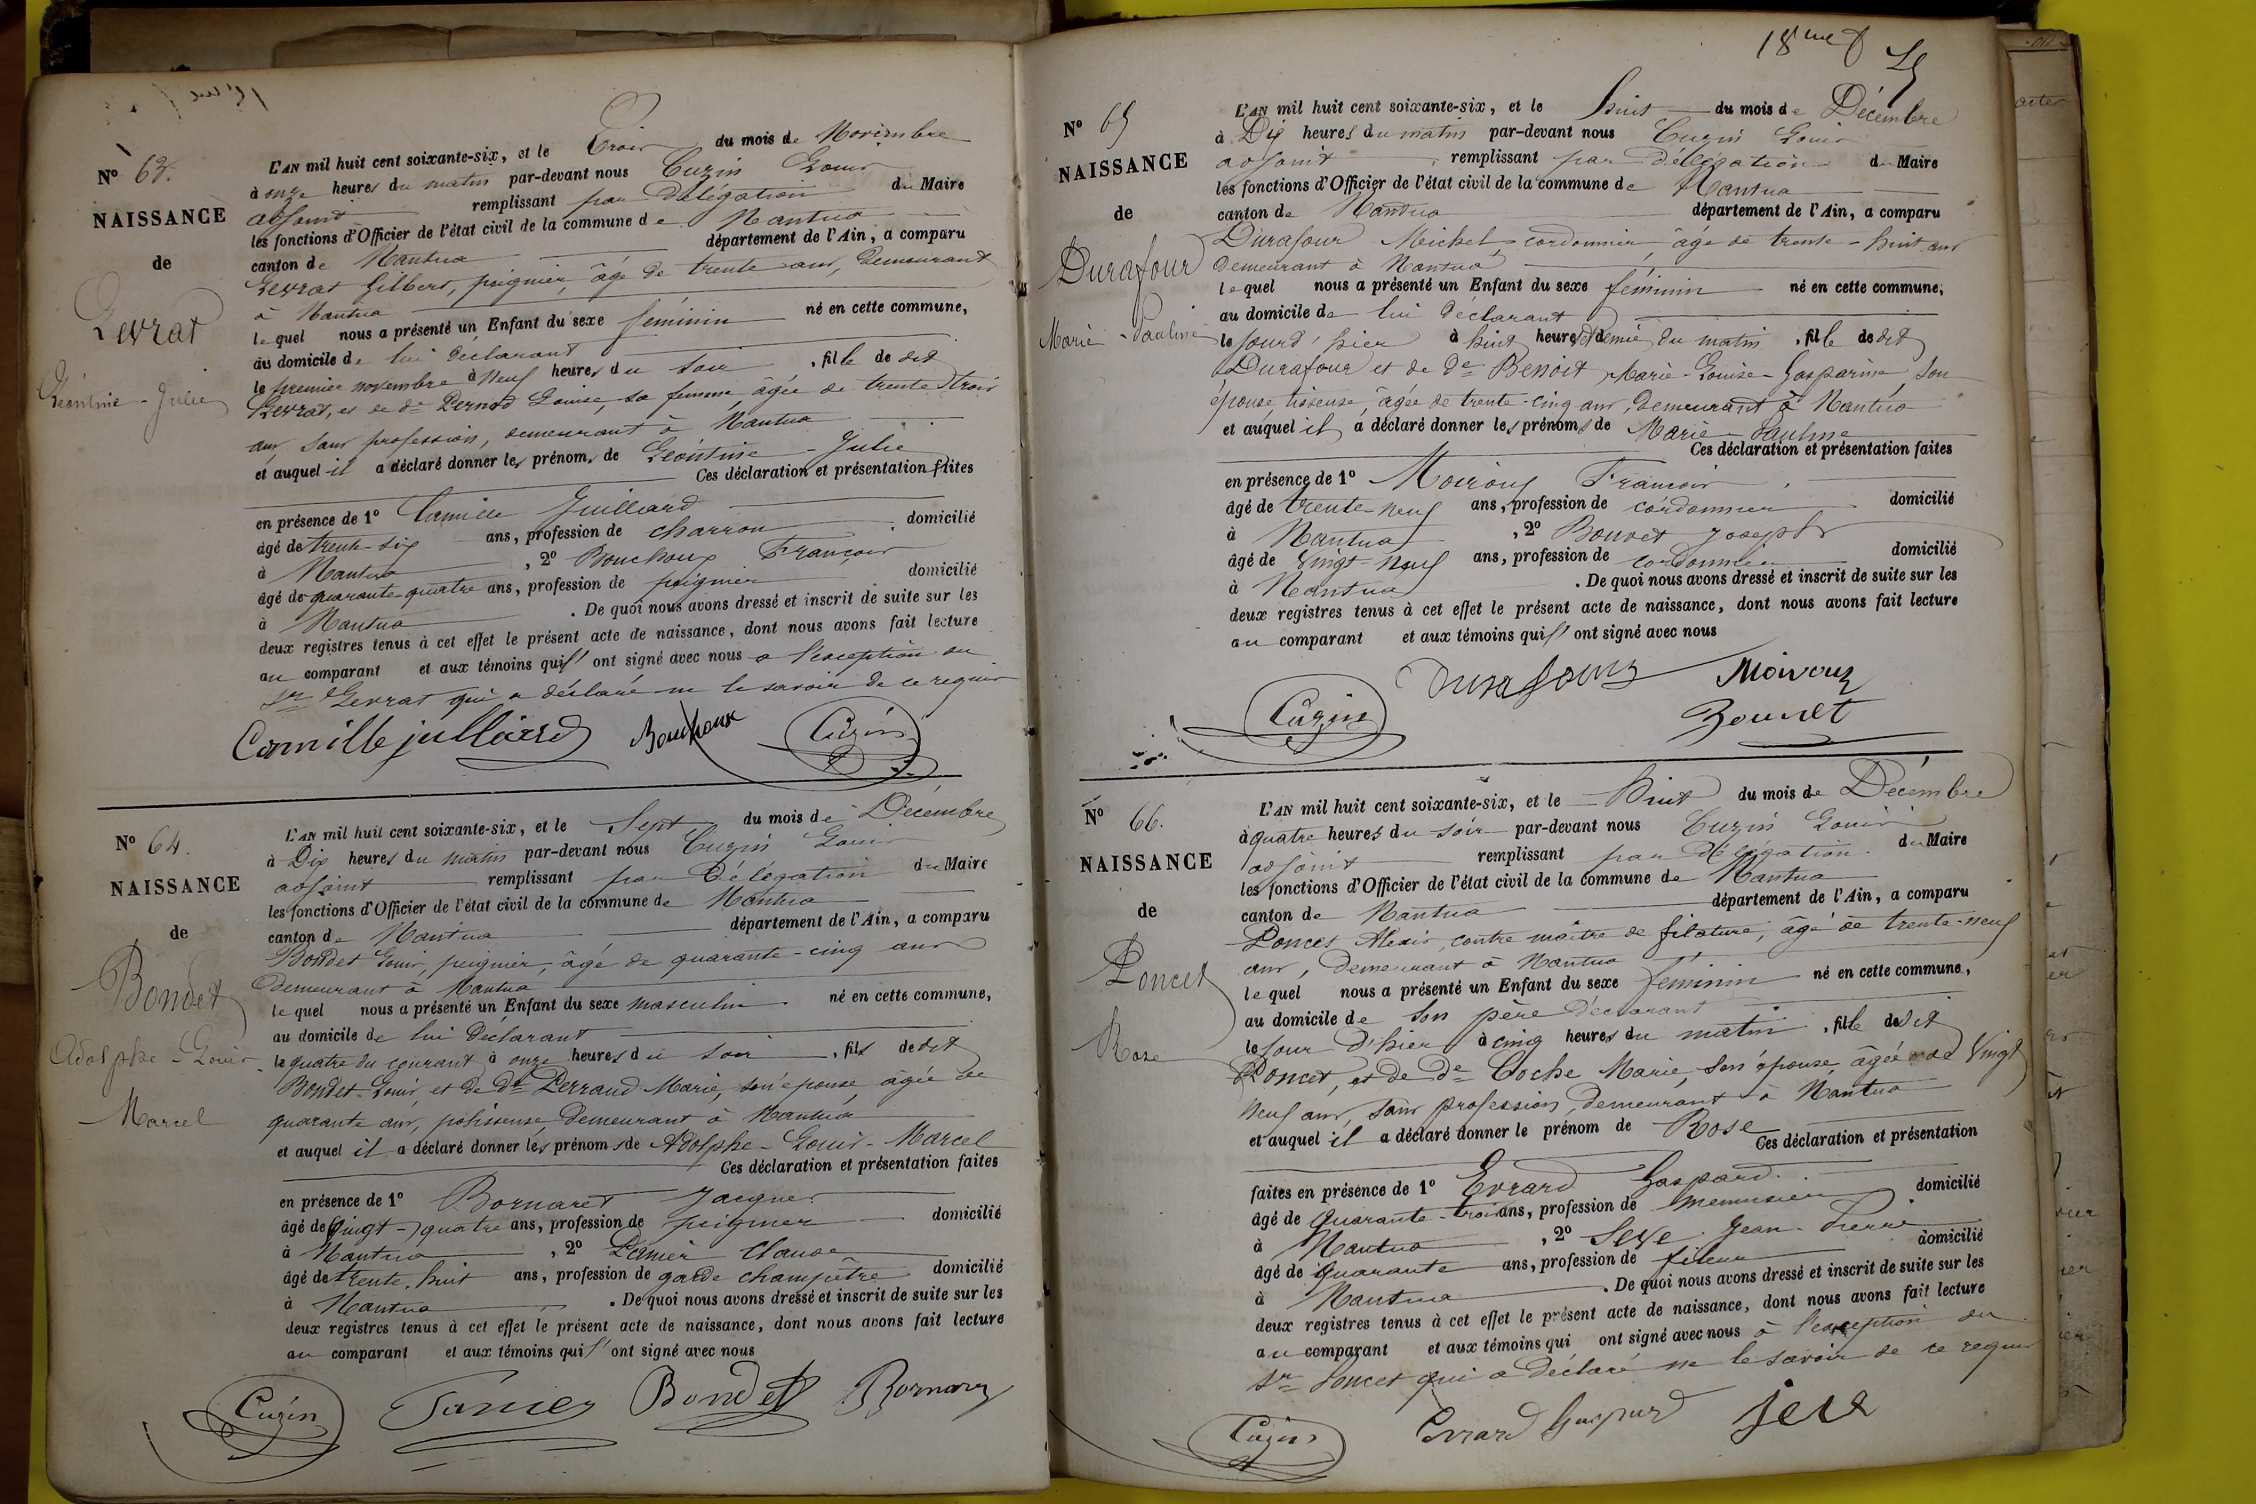 Nº 63.
NAISSANCE
de
Gevrat
Léontine - Julie
L'AN mil huit cent soixante-six, et le Trois du mois de Novembre
à onze heures du matin par-devant nous Cuzin Louis
adjoint remplissant par délégation du Maire
les fonctions d'Officier de l'état civil de la commune de Nantua
canton de Nantua département de l'Ain, a comparu
Gevrat Gilbert, peignier, âgé de trente ans, demeurant
à Nantua
lequel nous a présenté un Enfant du sexe féminin né en cette commune,
au domicile de lui déclarant
le premier novembre à Neuf heures du soir, fille de dit
Gevrat, et de de Pernod Louise, sa femme, âgée de trente trois
ans, sans profession, demeurant à Nantua
et auquel il a déclaré donner les prénoms de Léontine - Julie
Ces déclaration et présentation faites
en présence de 1º Camille Juilliard
âgé de trente-six ans, profession de charron domicilié
à Nantua, 2º Bouchoux François
âgé de quarante-quatre ans, profession de peignier domicilié
à Nantua. De quoi nous avons dressé et inscrit de suite sur les
deux registres tenus à cet effet le présent acte de naissance, dont nous avons fait lecture
au comparant et aux témoins qui ont signé avec nous a l'exception du
Sr Gevrat qui a déclaré ne le savoir de ce requis
Camille julliard Bouchoux Cuzin
Nº 64.
NAISSANCE
de
Bondet
Adolphe - Louis
Marcel
L'AN mil huit cent soixante-six, et le Sept du mois de Décembre
à Dix heures du matin par-devant nous Cuzin Louis
adjoint remplissant par délégation du Maire
les fonctions d'Officier de l'état civil de la commune de Nantua
canton de Nantua département de l'Ain, a comparu
Bondet Louis, peignier, âgé de quarante-cinq ans
demeurant à Nantua
lequel nous a présenté un Enfant du sexe masculin né en cette commune,
au domicile de lui déclarant
le quatre du courant à onze heures du soir, fils de dit
Bondet Louis, et de de Perraud Marie, son épouse, âgée de
quarante ans, polisseuse, demeurant à Nantua
et auquel il a déclaré donner les prénoms de Adolphe - Louis - Marcel
Ces déclaration et présentation faites
en présence de 1º Bornaret Jacques
âgé de Vingt-quatre ans, profession de peignier domicilié
à Nantua, 2º Claude
âgé de trente-huit ans, profession de garde champêtre domicilié
à Nantua. De quoi nous avons dressé et inscrit de suite sur les
deux registres tenus à cet effet le présent acte de naissance, dont nous avons fait lecture
au comparant et aux témoins qui ont signé avec nous
Cuzin Bondet
18me f
Nº 65
NAISSANCE
de
Durafour
Marie - Pauline
L'AN mil huit cent soixante-six, et le huit du mois de Décembre
à Dix heures du matin par-devant nous Cuzin Louis
adjoint remplissant par délégation du Maire
les fonctions d'Officier de l'état civil de la commune de Nantua
canton de Nantua département de l'Ain, a comparu
Durafour Michel cordonnier, âgé de trente-huit ans
demeurant à Nantua
lequel nous a présenté un Enfant du sexe féminin né en cette commune,
au domicile de lui déclarant
le jourd'hier à huit heures et demie du matin, fille de dit
Durafour et de de Benoit Marie-Louise-Gasparine, son
épouse, tisseuse, âgée de trente-cinq ans, demeurant à Nantua
et auquel il a déclaré donner les prénoms de Marie - Pauline
Ces déclaration et présentation faites
en présence de 1º Moiroux François
âgé de trente-neuf ans, profession de cordonnier domicilié
à Nantua, 2º Bouvet Joseph
âgé de Vingt-neuf ans, profession de cordonnier domicilié
à Nantua. De quoi nous avons dressé et inscrit de suite sur les
deux registres tenus à cet effet le présent acte de naissance, dont nous avons fait lecture
au comparant et aux témoins qui ont signé avec nous
Cuzin Durafour Moiroux
Bouvet
Nº 66.
NAISSANCE
de
Poncet
Rose
L'AN mil huit cent soixante-six, et le Huit du mois de Décembre
à quatre heures du soir par-devant nous Cuzin Louis
adjoint remplissant par délégation du Maire
les fonctions d'Officier de l'état civil de la commune de Nantua
canton de Nantua département de l'Ain, a comparu
Poncet Alexis, contre maître de filature, âgé de trente-neuf
ans, demeurant à Nantua
lequel nous a présenté un Enfant du sexe féminin né en cette commune,
au domicile de son père déclarant
le jour d'hier à cinq heures du matin, fille de dit
Poncet, et de de Coche Marie, son épouse, âgée de Vingt
neuf ans, sans profession, demeurant à Nantua
et auquel il a déclaré donner le prénom de Rose
Ces déclaration et présentation
faites en présence de 1º Evrard Gaspard
âgé de Quarante-trois ans, profession de menuisier domicilié
à Nantua, 2º Seve Jean-Pierre
âgé de Quarante ans, profession de fileur domicilié
à Nantua. De quoi nous avons dressé et inscrit de suite sur les
deux registres tenus à cet effet le présent acte de naissance, dont nous avons fait lecture
au comparant et aux témoins qui ont signé avec nous à l'exception du
Sr Poncet qui a déclaré ne le savoir de ce requis
Cuzin Evrard Gaspard seve